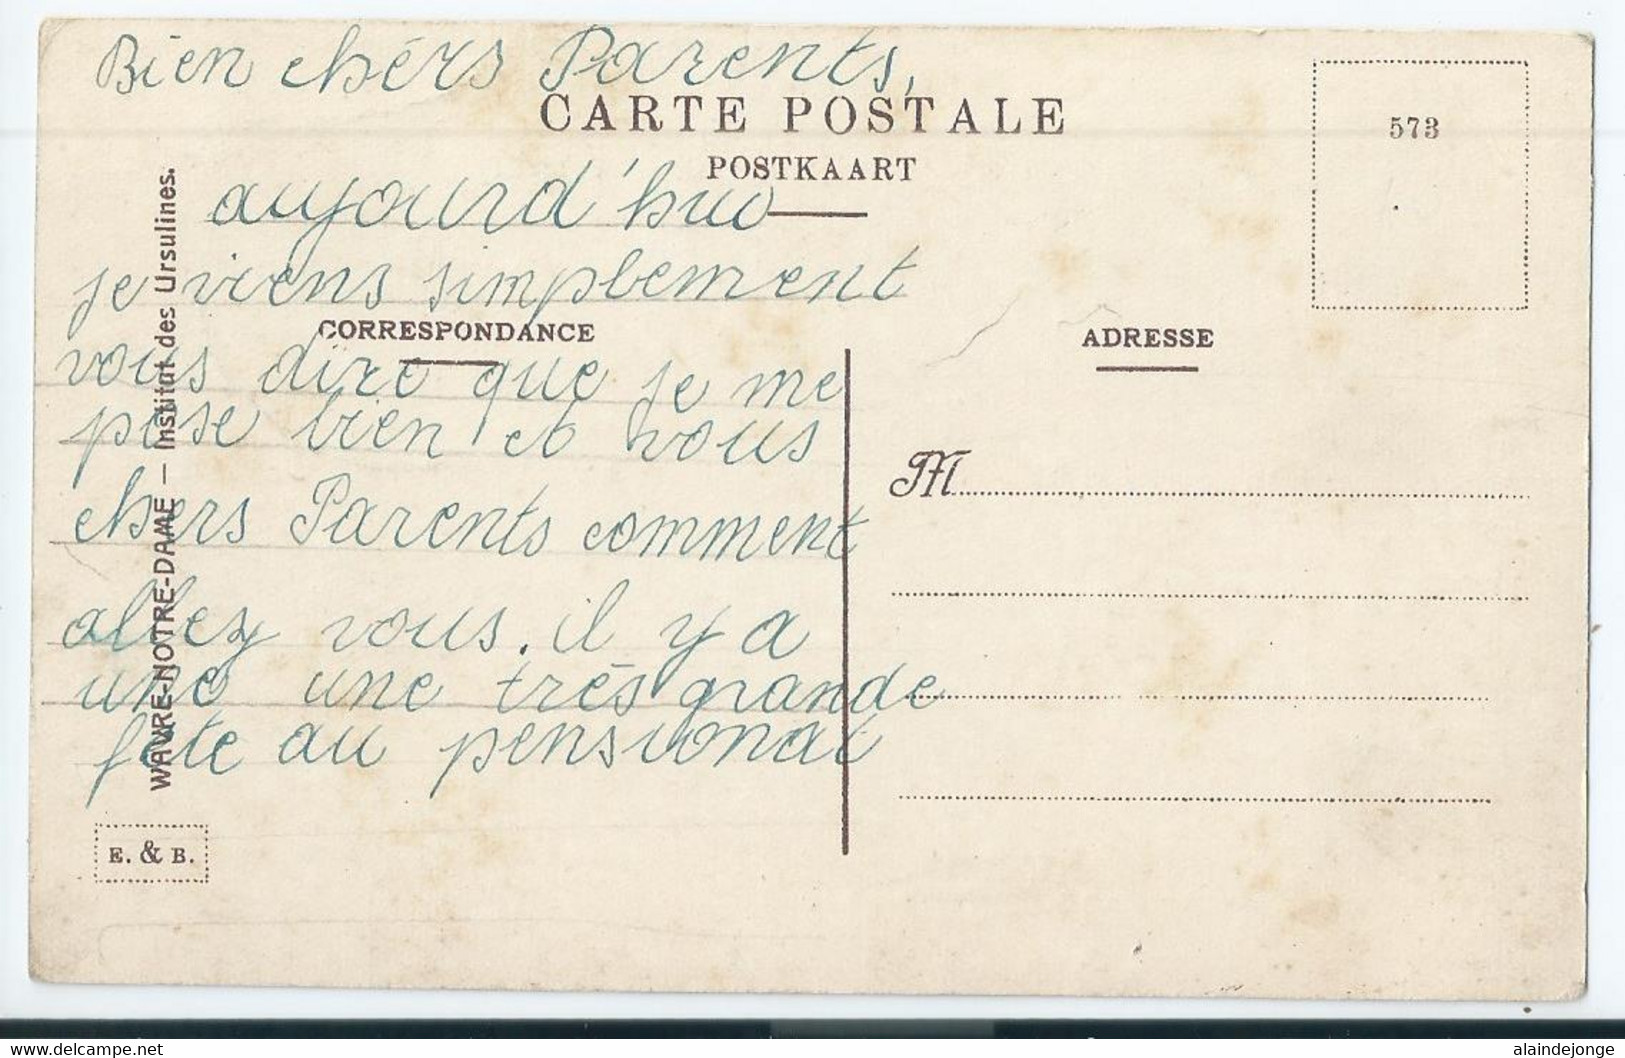 Bien chérs Parents,
CARTE POSTALE
573
POSTKAART
aujourd'hui
je viens simplement
CORRESPONDANCE
ADRESSE
vous dire que je me
bien et vous
M
chers Parents comment
allez vous. il y a
une une très grande
fête au pensionat
WAVRE-NOTRE-DAME — Institut des Ursulines.
E. & B.
delcampe.net
alaindejonge